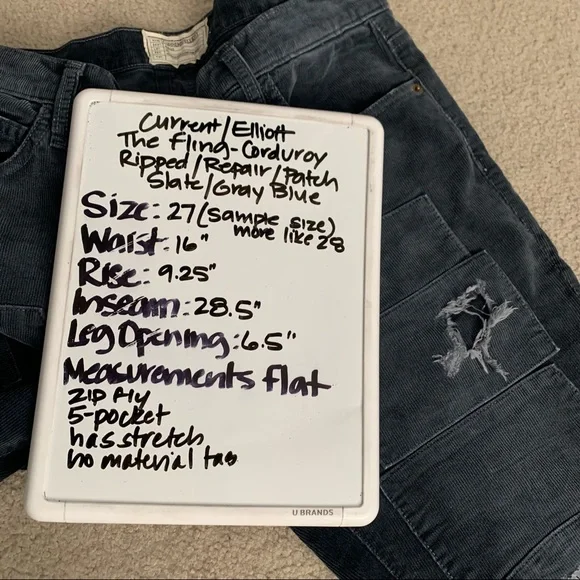 Current/Elliott
The Fling-Corduroy
Ripped/Repair/Patch
Slate/Gray Blue
Size: 27 (sample size)
more like 28
Waist: 16"
Rise: 9.25"
Inseam: 28.5"
Leg Opening: 6.5"
Measurements flat
zip fly
5-pocket
has stretch
no material tag
U BRANDS